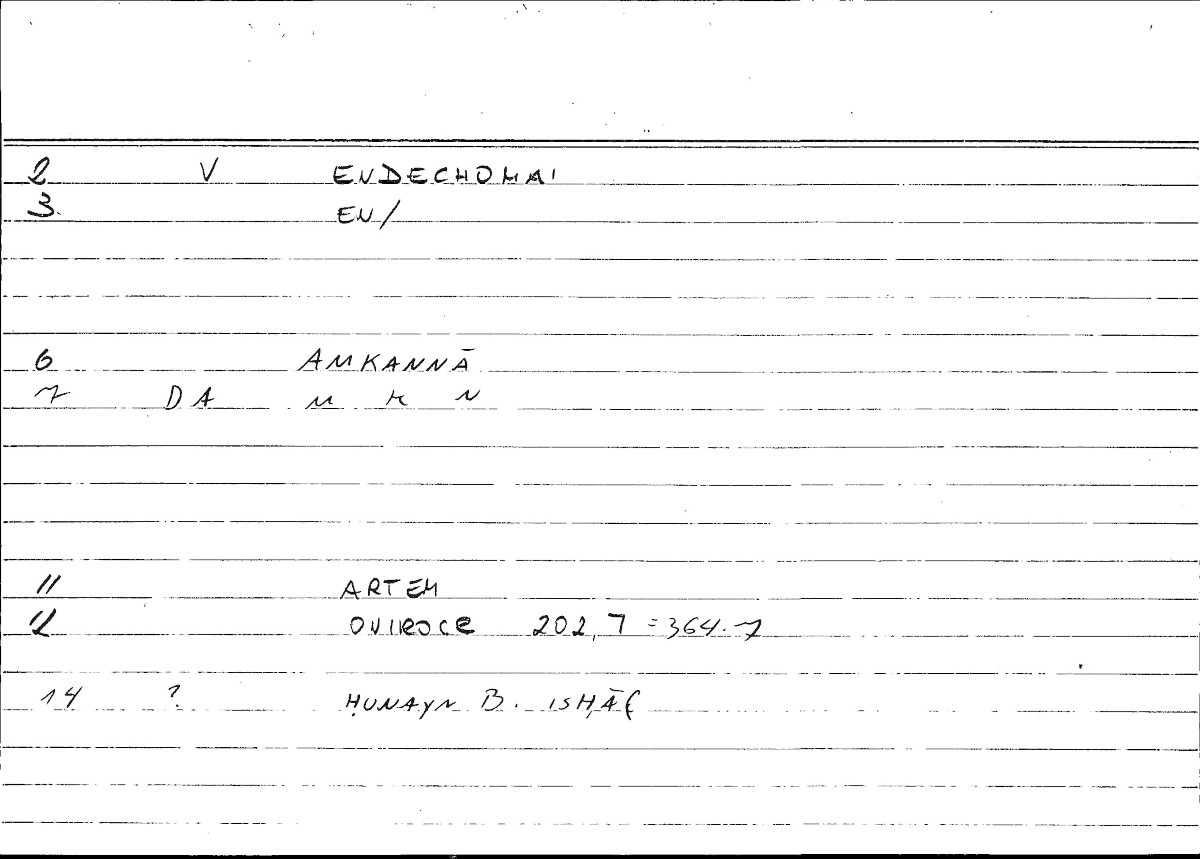 2 V ENDECHOMAI
3 EN/
6 AMKANNĀ
7 DA M K N
11 ARTEM
12 ONIROCR 202,7 = 364.7
14 ? ḤUNAYN B. ISḤĀQ